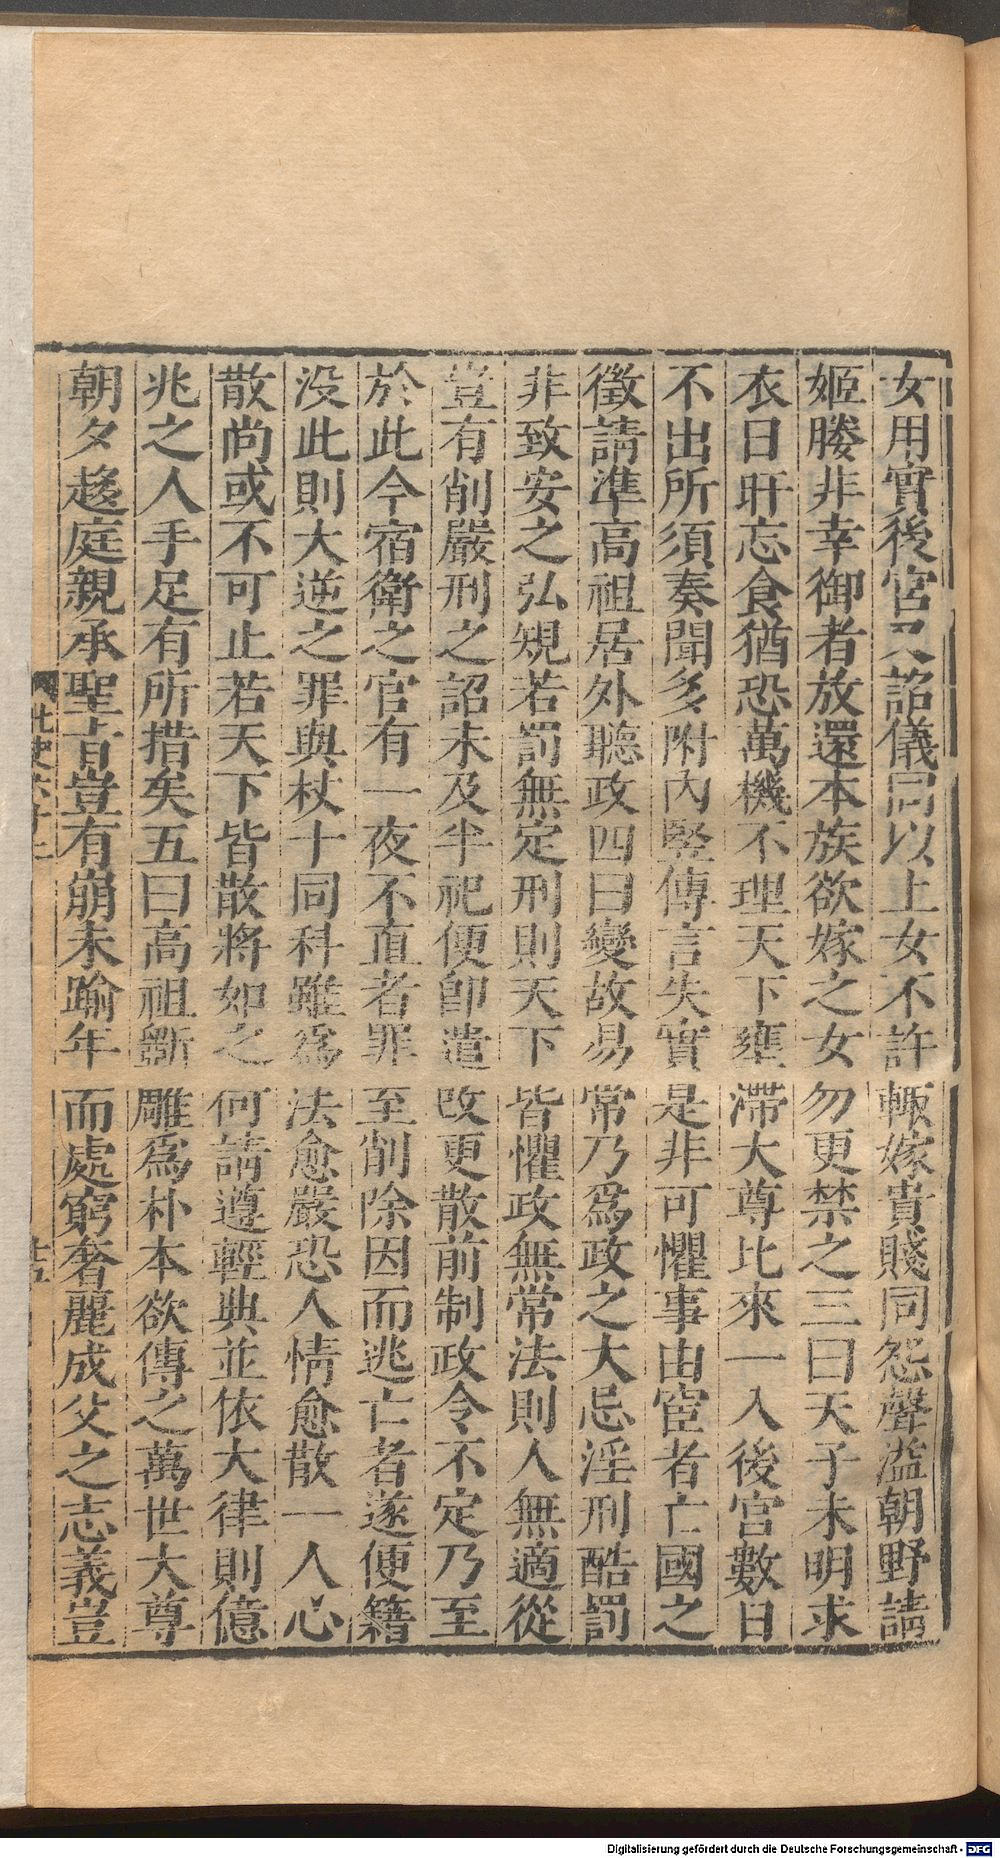 女用實後宮又詔儀同以上女不許輙嫁貴賤同怨聲溢朝野請
姬媵非幸御者放還本族欲嫁之女勿更禁之三曰天子未明求
衣日旰忘食猶恐萬機不理天下壅滯大尊比來一入後宮數日
不出所須奏聞多附內竪傳言失實是非可懼事由宦者亡國之
徵請準高祖居外聽政四曰變故易常乃爲政之大忌淫刑酷罰
非致安之弘規若罰無定刑則天下皆懼政無常法則人無適從
豈有削嚴刑之詔未及半祀便卽遣改更散前制政令不定乃至
於此今宿衛之官有一夜不直者罪至削除因而逃亡者遂便籍
没此則大逆之罪與杖十同科雖爲法愈嚴恐人情愈散一人心
散尚或不可止若天下皆散將如之何請遵輕典並依大律則億
兆之人手足有所措矣五曰高祖斵雕爲朴本欲傳之萬世大尊
朝夕趍庭親承聖旨豈有崩未踰年而處窮奢麗成父之志義豈